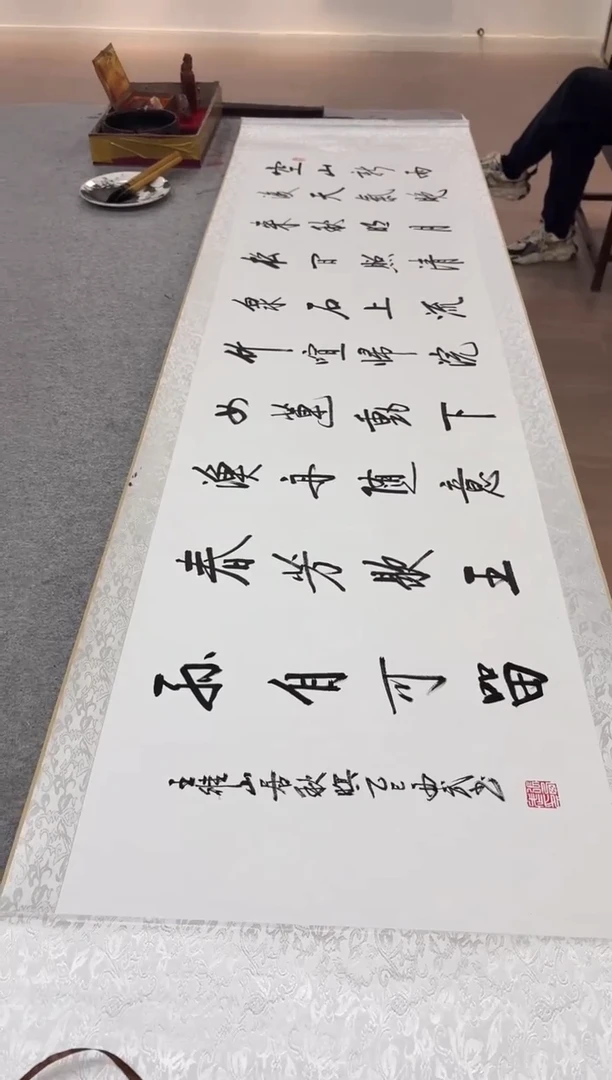 空山新雨
後天氣晚
来秋明月
松间照清
泉石上流
竹喧歸浣
女蓮動下
漁舟随意
春芳歇王
孫自可留
王維山居秋暝乙巳书